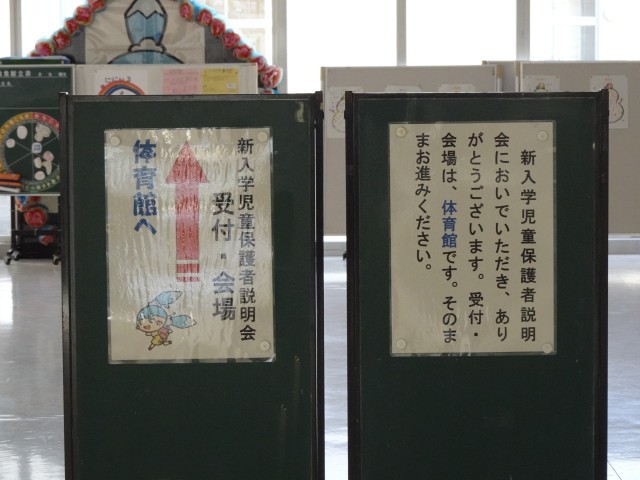 新入学児童保護者説明会
受付・会場
体育館へ
新入学児童保護者説明
会においでいただき、あり
がとうございます。受付・
会場は、体育館です。そのま
まお進みください。